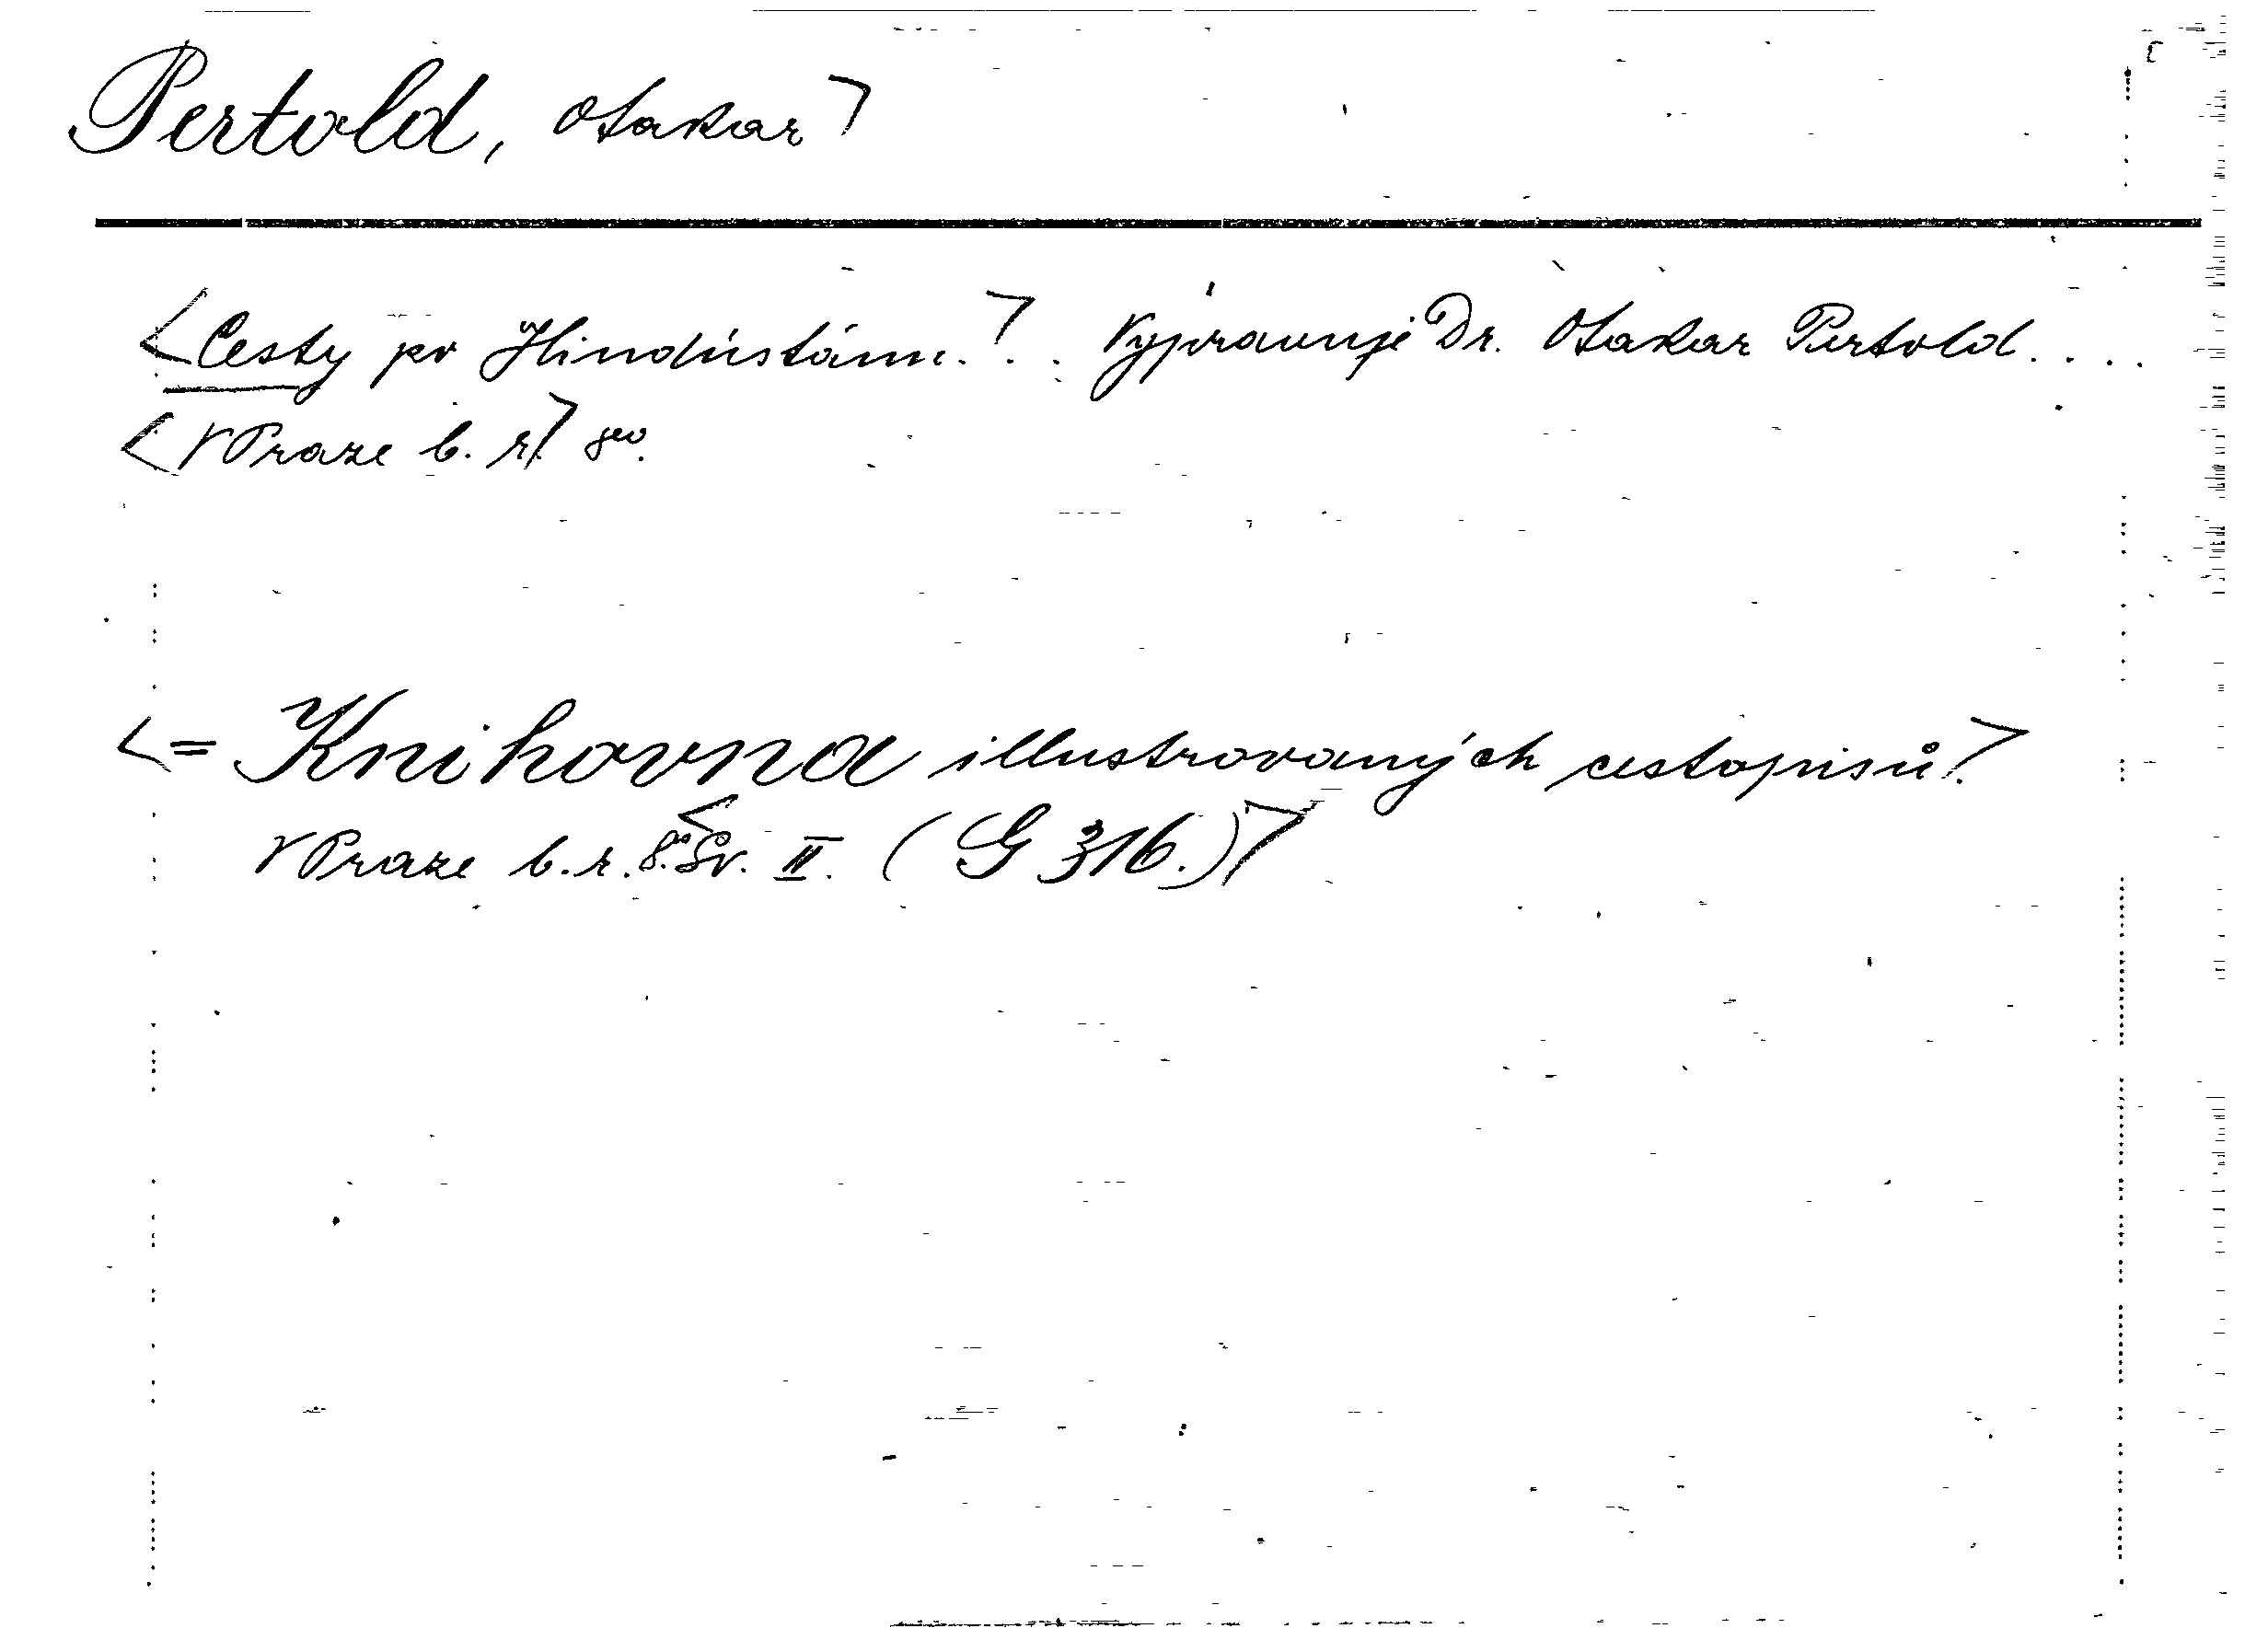 Pertold, Otakar>
<Cesty po Hindústánu.>.. Vypravuje Dr. Otakar Pertold....
<V Praze b. r.> 8vo.
<= Knihovna illustrovaných cestopisů.>
V Praze b. r. 8.° <Sv. II. (G 316.)>